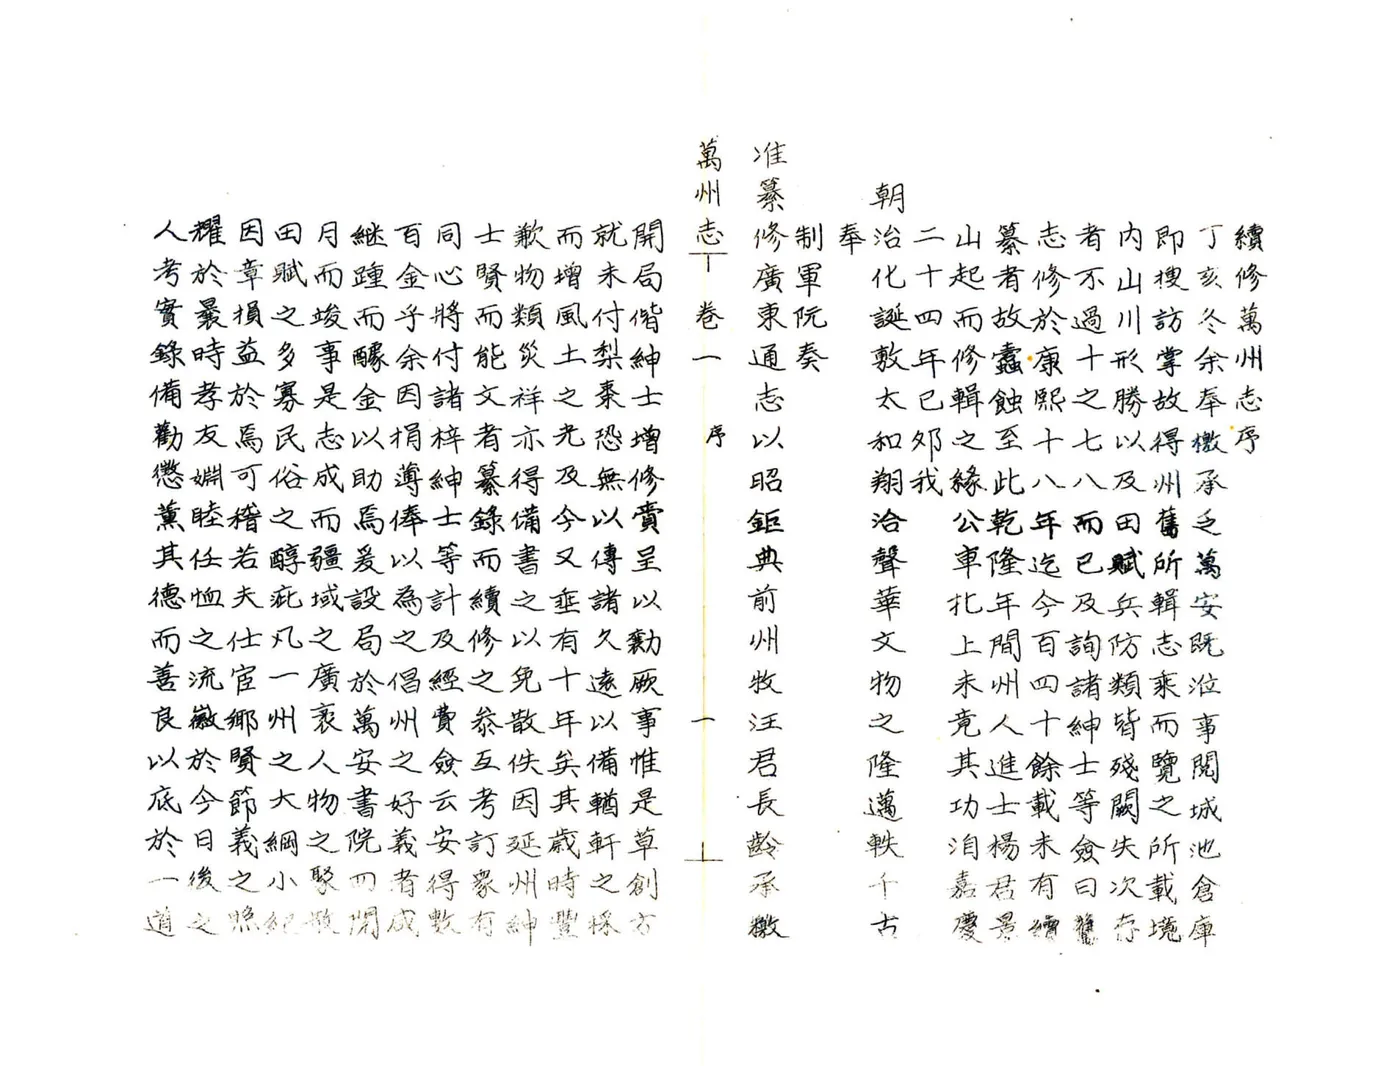 續修萬州志序
丁亥冬余奉檄承乏萬安既涖事閱城池倉庫
即搜訪掌故得州舊所輯志乘而覽之所載境
內山川形勝以及田賦兵防類皆殘闕失次存
者不過十之七八而已及詢諸紳士等僉曰舊
志修於康熙十八年迄今百四十餘載未有續
纂者故蠹蝕至此乾隆年間州人進士楊君景
山起而修輯之緣公車北上未竟其功洎嘉慶
二十四年已夘我
朝
治化誕敷太和翔洽聲華文物之隆邁軼千古
奉
制軍阮奏
准纂修廣東通志以昭鉅典前州牧汪君長齡承檄
萬州志 卷一 序 一
開局偕紳士增修賞呈以勷厥事惟是草創方
就未付梨棗恐無以傳諸久遠以備輶軒之採
而增風土之光及今又垂有十年矣其歲時豐
歉物類災祥亦得備書之以免散佚因延州紳
士賢而能文者纂錄而續修之叅互考訂衆有
同心將付諸梓紳士等計及經費僉云安得數
百金乎余因捐薄俸以為之倡州之好義者成
継踵而醵金以助焉爰設局於萬安書院四閱
月而竣事是志成而疆域之廣袤人物之聚散
田賦之多寡民俗之醇疵凡一州之大綱小紀
因章損益於焉可稽若夫仕宦鄉賢節義之照
耀於曩時孝友婣睦任恤之流徽於今日後之
人考實錄備勸懲薰其德而善良以底於一道